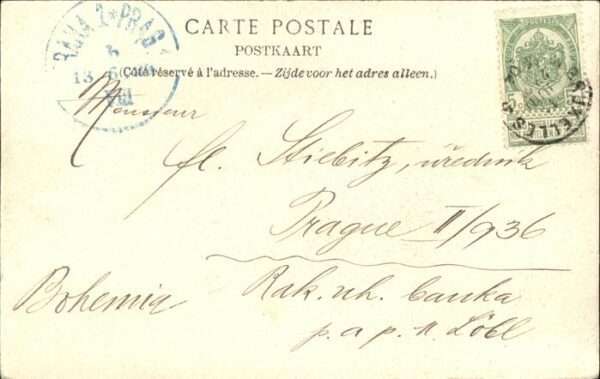 CARTE POSTALE
POSTKAART
(Côté réservé à l'adresse. — Zijde voor het adres alleen.)
PRAHA 1 * PRAG
BRUXELLES
Monsieur
fl. Stiebitz, úředník
Prague II/936
Bohemia
Rak. uh. banka
p. a p. n. Löbl